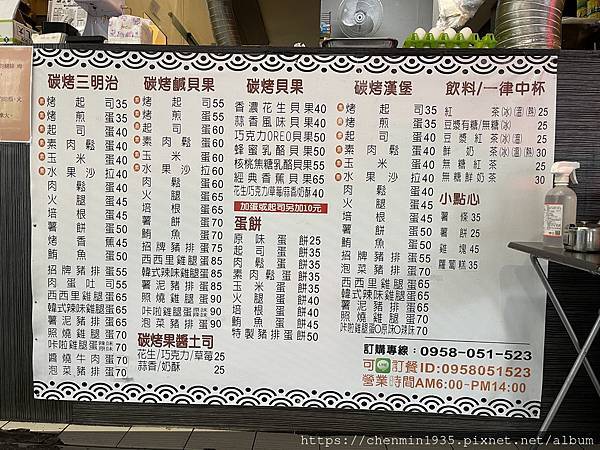 碳烤三明治
烤起司35
烤煎蛋35
起司蛋40
素肉鬆蛋40
玉米蛋40
水果沙拉40
肉鬆蛋40
火腿蛋40
培根蛋45
薯餅蛋50
烤香蕉45
鮪魚蛋50
招牌豬排蛋55
肉蛋吐司55
西西里雞腿蛋65
韓式辣味雞腿蛋65
薯泥豬排蛋65
照燒雞腿蛋70
咔啦雞腿蛋原味辣味70
醬燒牛肉蛋70
泡菜豬排蛋70
碳烤鹹貝果
烤起司55
烤煎蛋55
起司蛋60
素肉鬆蛋60
玉米蛋60
水果沙拉60
肉鬆蛋60
火腿蛋60
培根蛋65
薯餅蛋70
鮪魚蛋70
招牌豬排蛋75
西西里雞腿蛋85
韓式辣味雞腿蛋85
薯泥豬排蛋85
照燒雞腿蛋90
咔啦雞腿蛋原味辣味90
泡菜豬排蛋90
碳烤果醬土司
花生/巧克力/草莓25
蒜香/奶酥25
碳烤貝果
香濃花生貝果40
蒜香風味貝果40
巧克力OREO貝果50
蜂蜜乳酪貝果50
核桃焦糖乳酪貝果55
經典香蕉貝果60
花生/巧克力/草莓/蒜香/奶酥40
加蛋或起司另加10元
蛋餅
原味蛋餅25
起司蛋餅35
肉鬆蛋餅35
素肉鬆蛋餅35
玉米蛋餅35
火腿蛋餅35
培根蛋餅40
鮪魚蛋餅40
特製豬排蛋餅50
碳烤漢堡
烤起司35
烤煎蛋35
起司蛋40
素肉鬆蛋40
玉米蛋40
水果沙拉40
肉鬆蛋40
火腿蛋40
培根蛋45
薯餅蛋50
鮪魚蛋50
招牌豬排蛋55
泡菜豬排蛋70
西西里雞腿蛋65
韓式辣味雞腿蛋65
薯泥豬排蛋65
照燒雞腿蛋70
咔啦雞腿蛋O原味O辣味70
飲料/一律中杯
紅茶(冰)(溫)(熱)25
豆漿有糖/無糖(冰)25
豆漿紅茶(冰)(溫)25
鮮奶茶(冰)(溫)(熱)30
無糖紅茶25
無糖鮮奶茶30
小點心
薯條35
薯餅25
雞塊45
蘿蔔糕35
訂購專線：0958-051-523
可LINE訂餐ID:0958051523
營業時間AM6:00-PM14:00
https://chenmin1935.pixnet.net/album